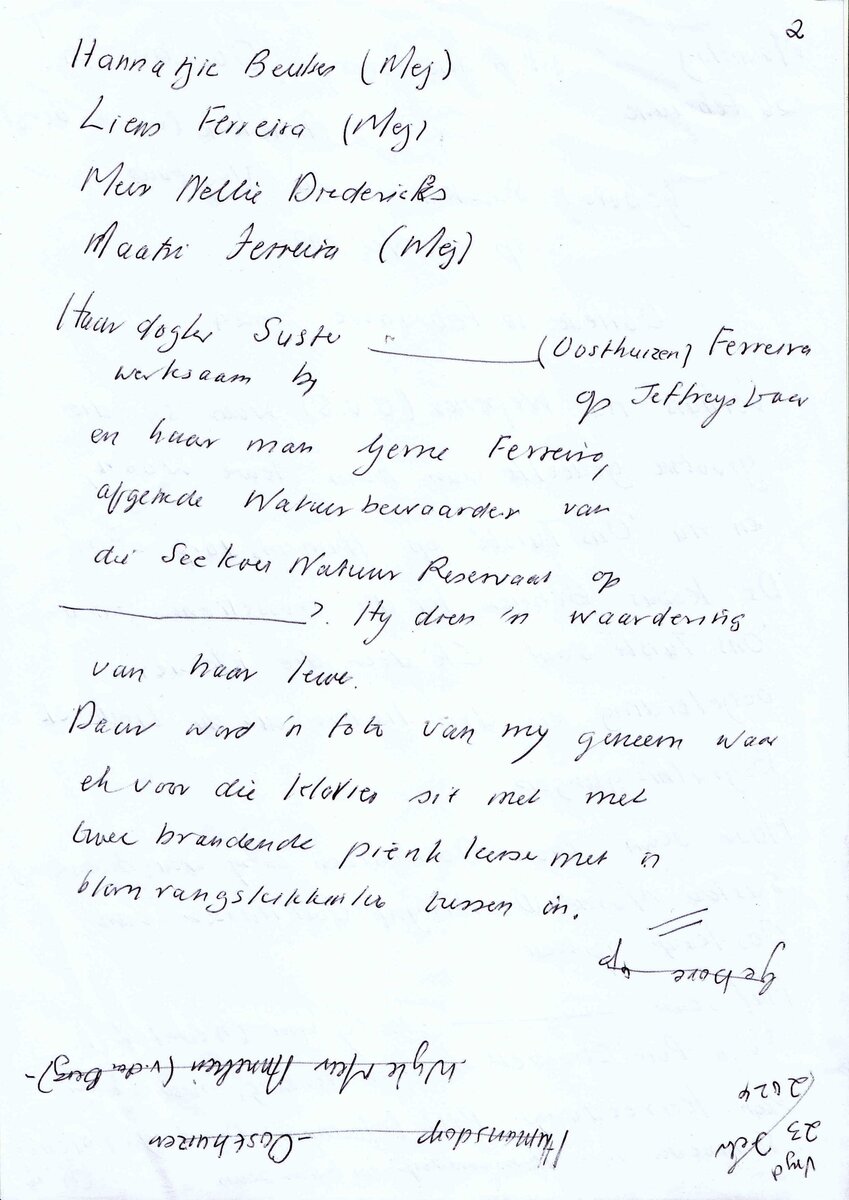 2
Hannatjie Beukes (Mej)
Liens Ferreira (Mej)
Mev Nellie Diedericks
Maatri Ferreira (Mej)
Haar dogter Suste ______ (Oosthuizen) Ferreira
werksaam by op Jeffreysbaai
en haar man Gerrie Ferreira,
afgetrede Natuurbewaarder van
die Seekoei Natuur Reservaat op
______?. Hy doen 'n waardering
van haar lewe.
Daar word 'n foto van my geneem waar
ek voor die klavier sit met met
twee brandende piënk kerse met 'n
blomrangskikking tussen in.
gebore op
Wyle Mev Annekien (v. den Berg) -
Humansdorp - Oosthuizen
Vryd
23 Feb
2024